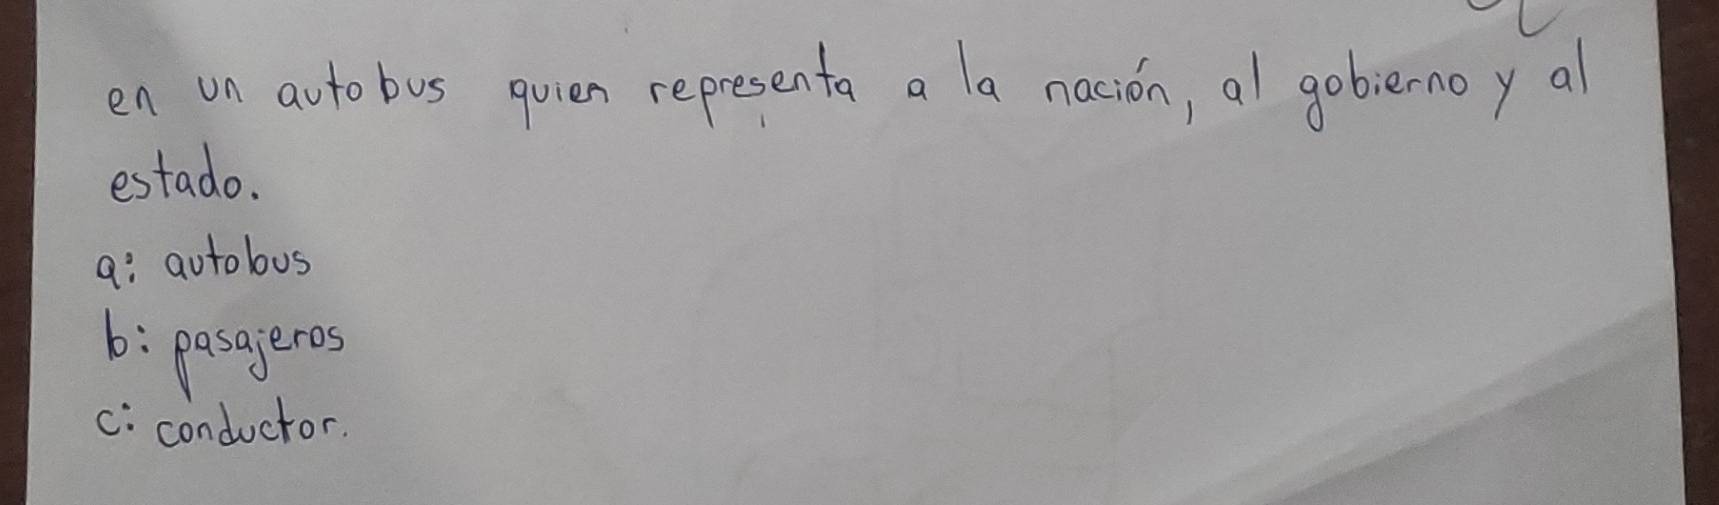 en un autobus quien representa a la nación, al gobierno y al
estado.
a: autobus
b: pasajeros
c: conductor.